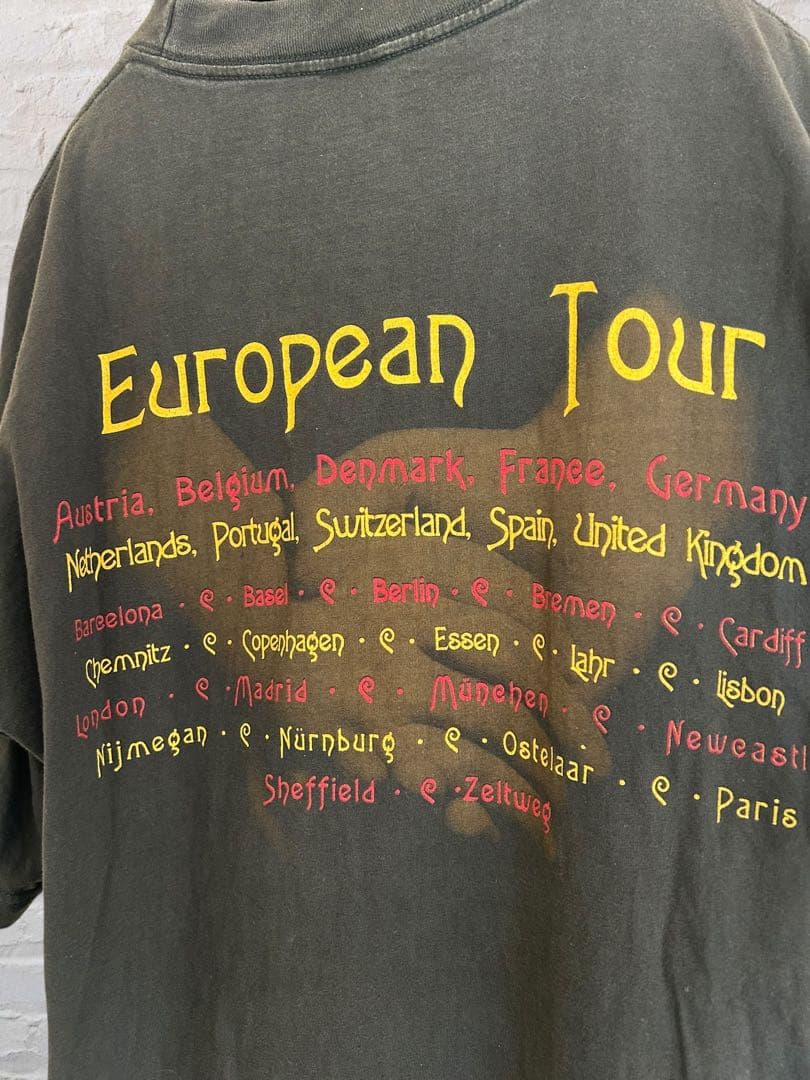 European Tour
Austria, Belgium, Denmark, France, Germany
Netherlands, Portugal, Switzerland, Spain, United Kingdom
Barcelona · e · Basel · e · Berlin · e · Bremen · e · Cardiff
Chemnitz · e · Copenhagen · e · Essen · e · Lahr · e · Lisbon
London · e · Madrid · e · München · e · Newcastl
Nijmegan · e · Nürnburg · e · Ostelaar · e · Paris
Sheffield · e · Zeltweg